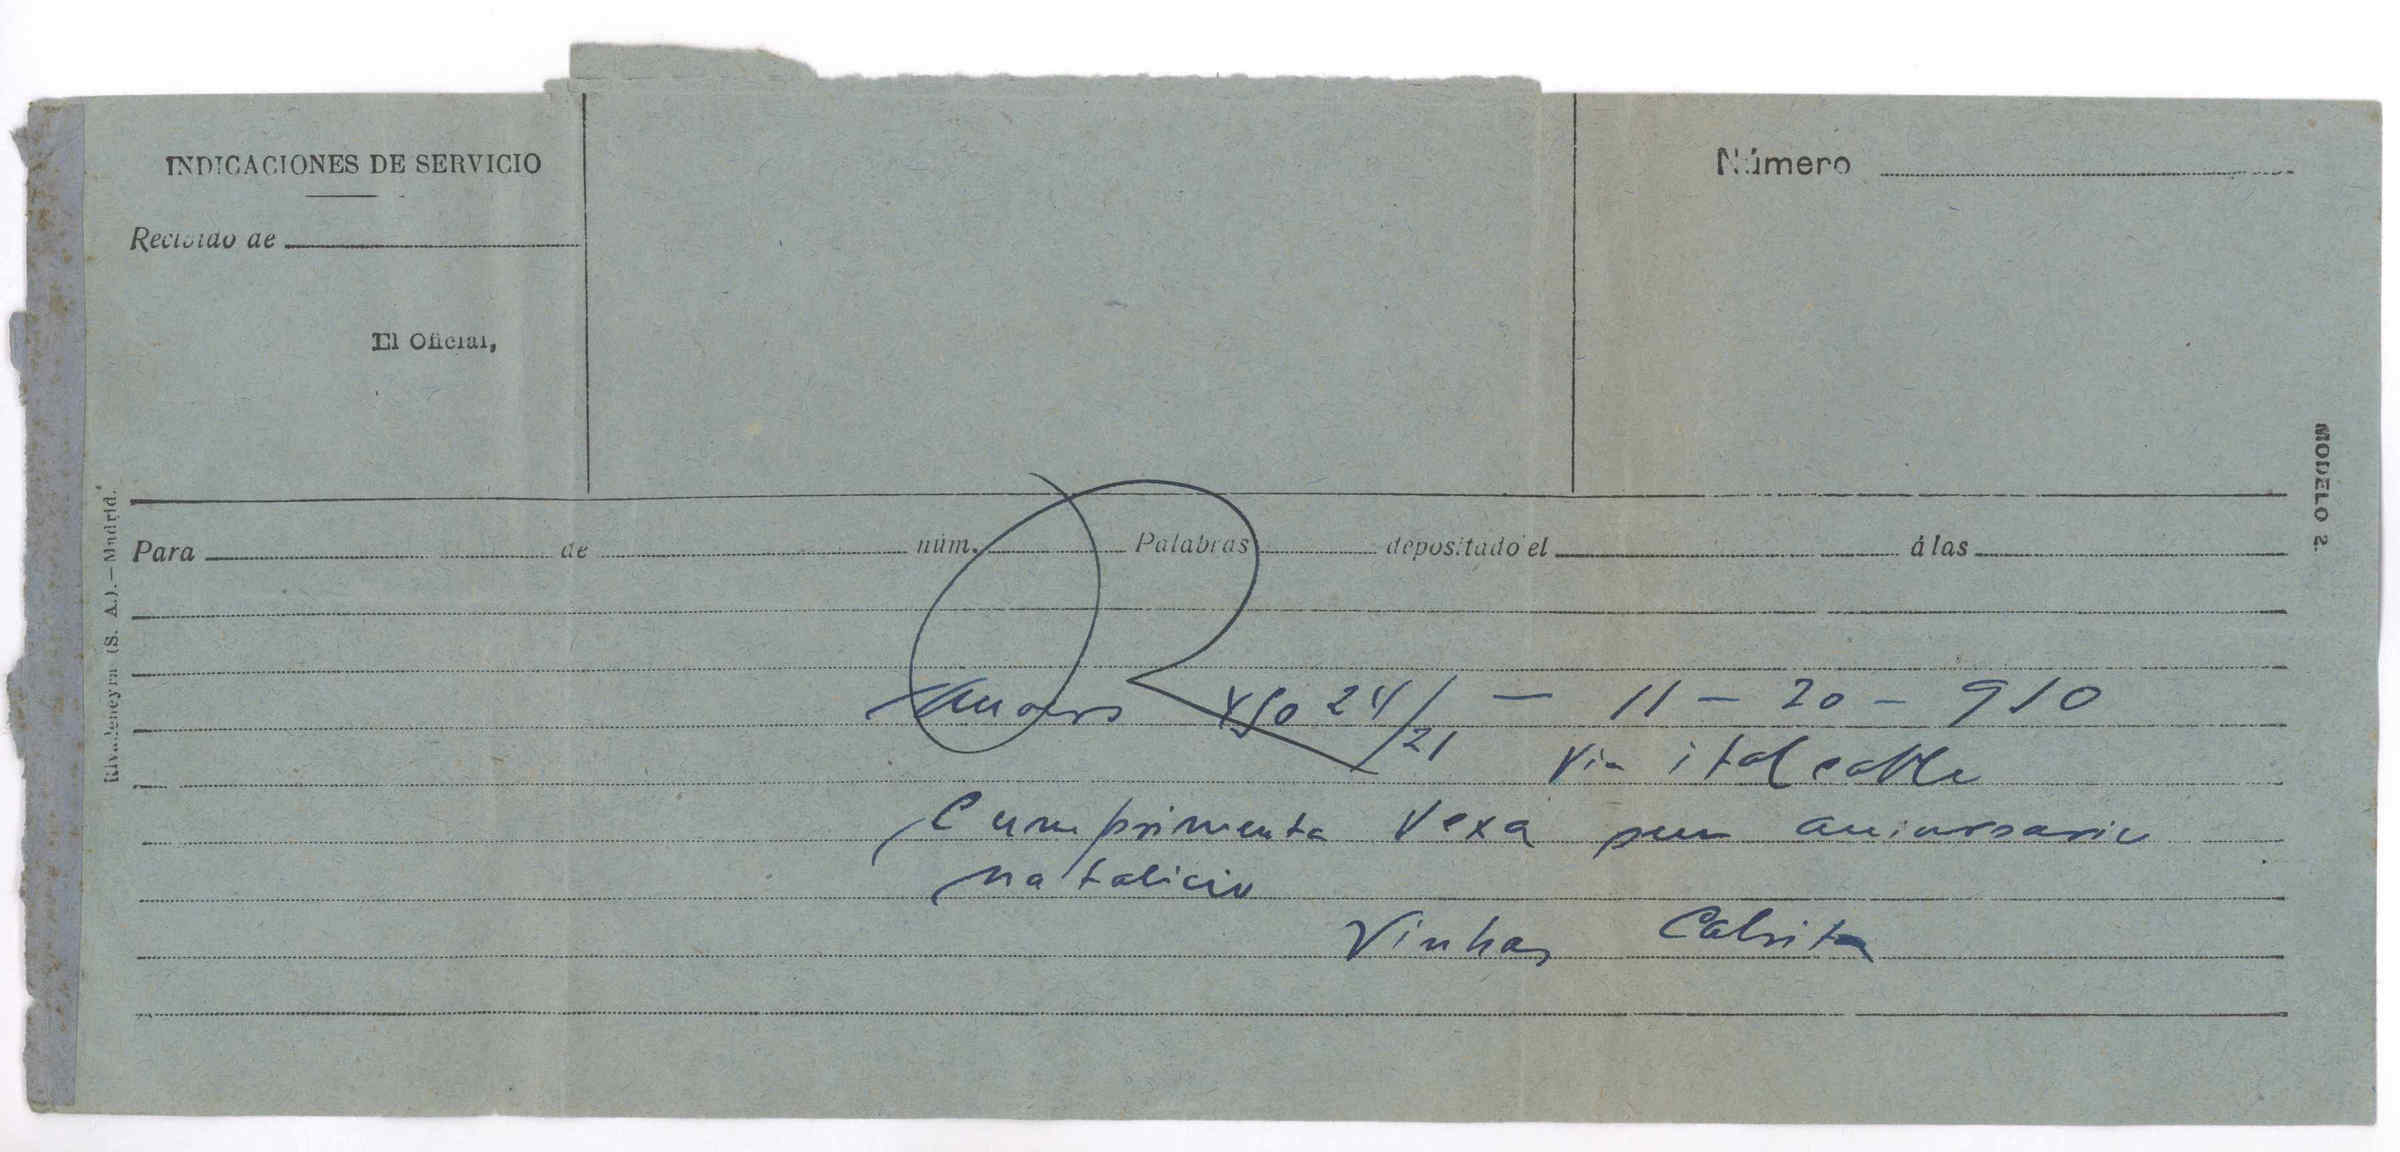 INDICACIONES DE SERVICIO
Número
Recibido de
El Oficial,
MODELO 2.
Rivadeneyra (S. A.).—Madrid.
Para de núm. Palabras depositado el á las
24/21 — 11 — 20 — 910
Via italcable
Cumprimenta Vexa seu aniversario
natalicio
Vinhas Calvita